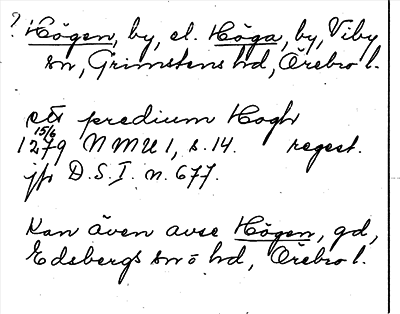 ? Högen, by, el. Höga, by, Viby
sn, Grimstens hd, Örebro l.
ett predium Hogh
15/6
1279 NMU 1, s. 14. regest.
jfr D.S.I. n. 677.
Kan även avse Högen, gd,
Edsbergs sn o hd, Örebro l.